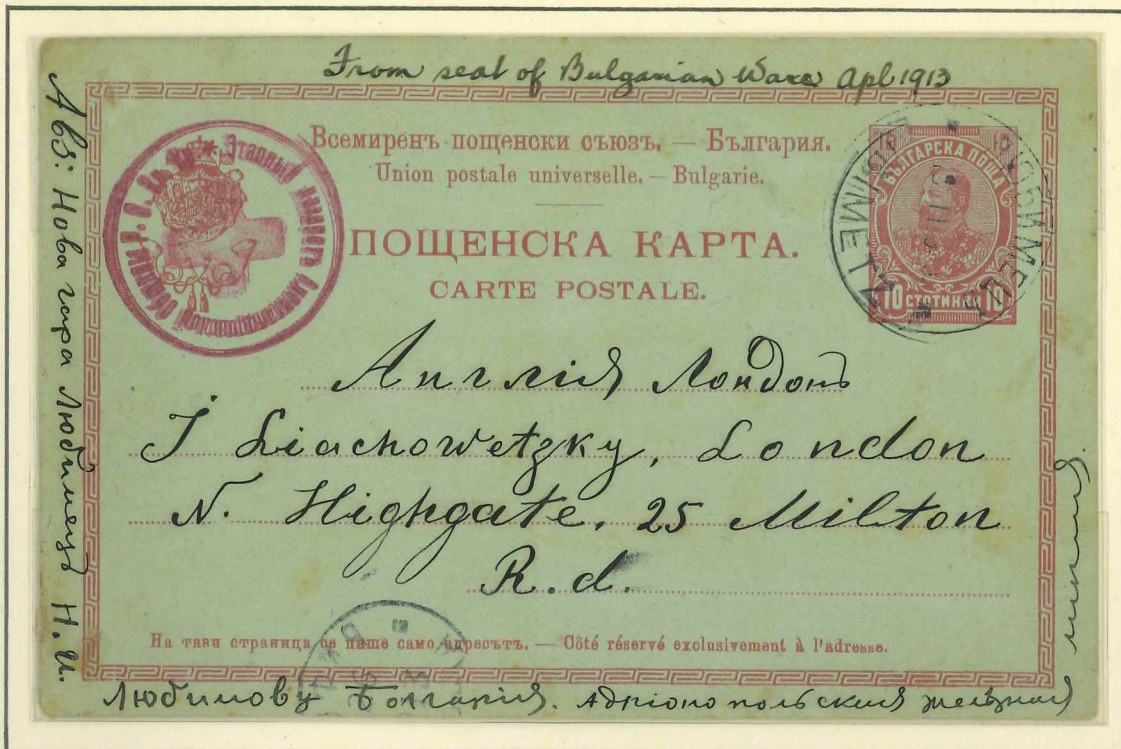 From seat of Bulgarian Ware Apl 1913
Всемиренъ пощенски съюзъ. — България.
Union postale universelle. — Bulgarie.
ПОЩЕНСКА КАРТА.
CARTE POSTALE.
БЪЛГАРСКА ПОЩА
10 СТОТИНКИ 10
ЛЮБИМЕЦ
Этапный лазаретъ Александровской Общины
Англія Лондонъ
J Liachowetzky, London
N. Highgate. 25 Milton
R.d.
На тази страница се пише само адресътъ. — Côté réservé exclusivement à l'adresse.
Нова гара Любимецъ Н. И.
Любимову Болгарія. Адріонопольская желѣзная
линия.